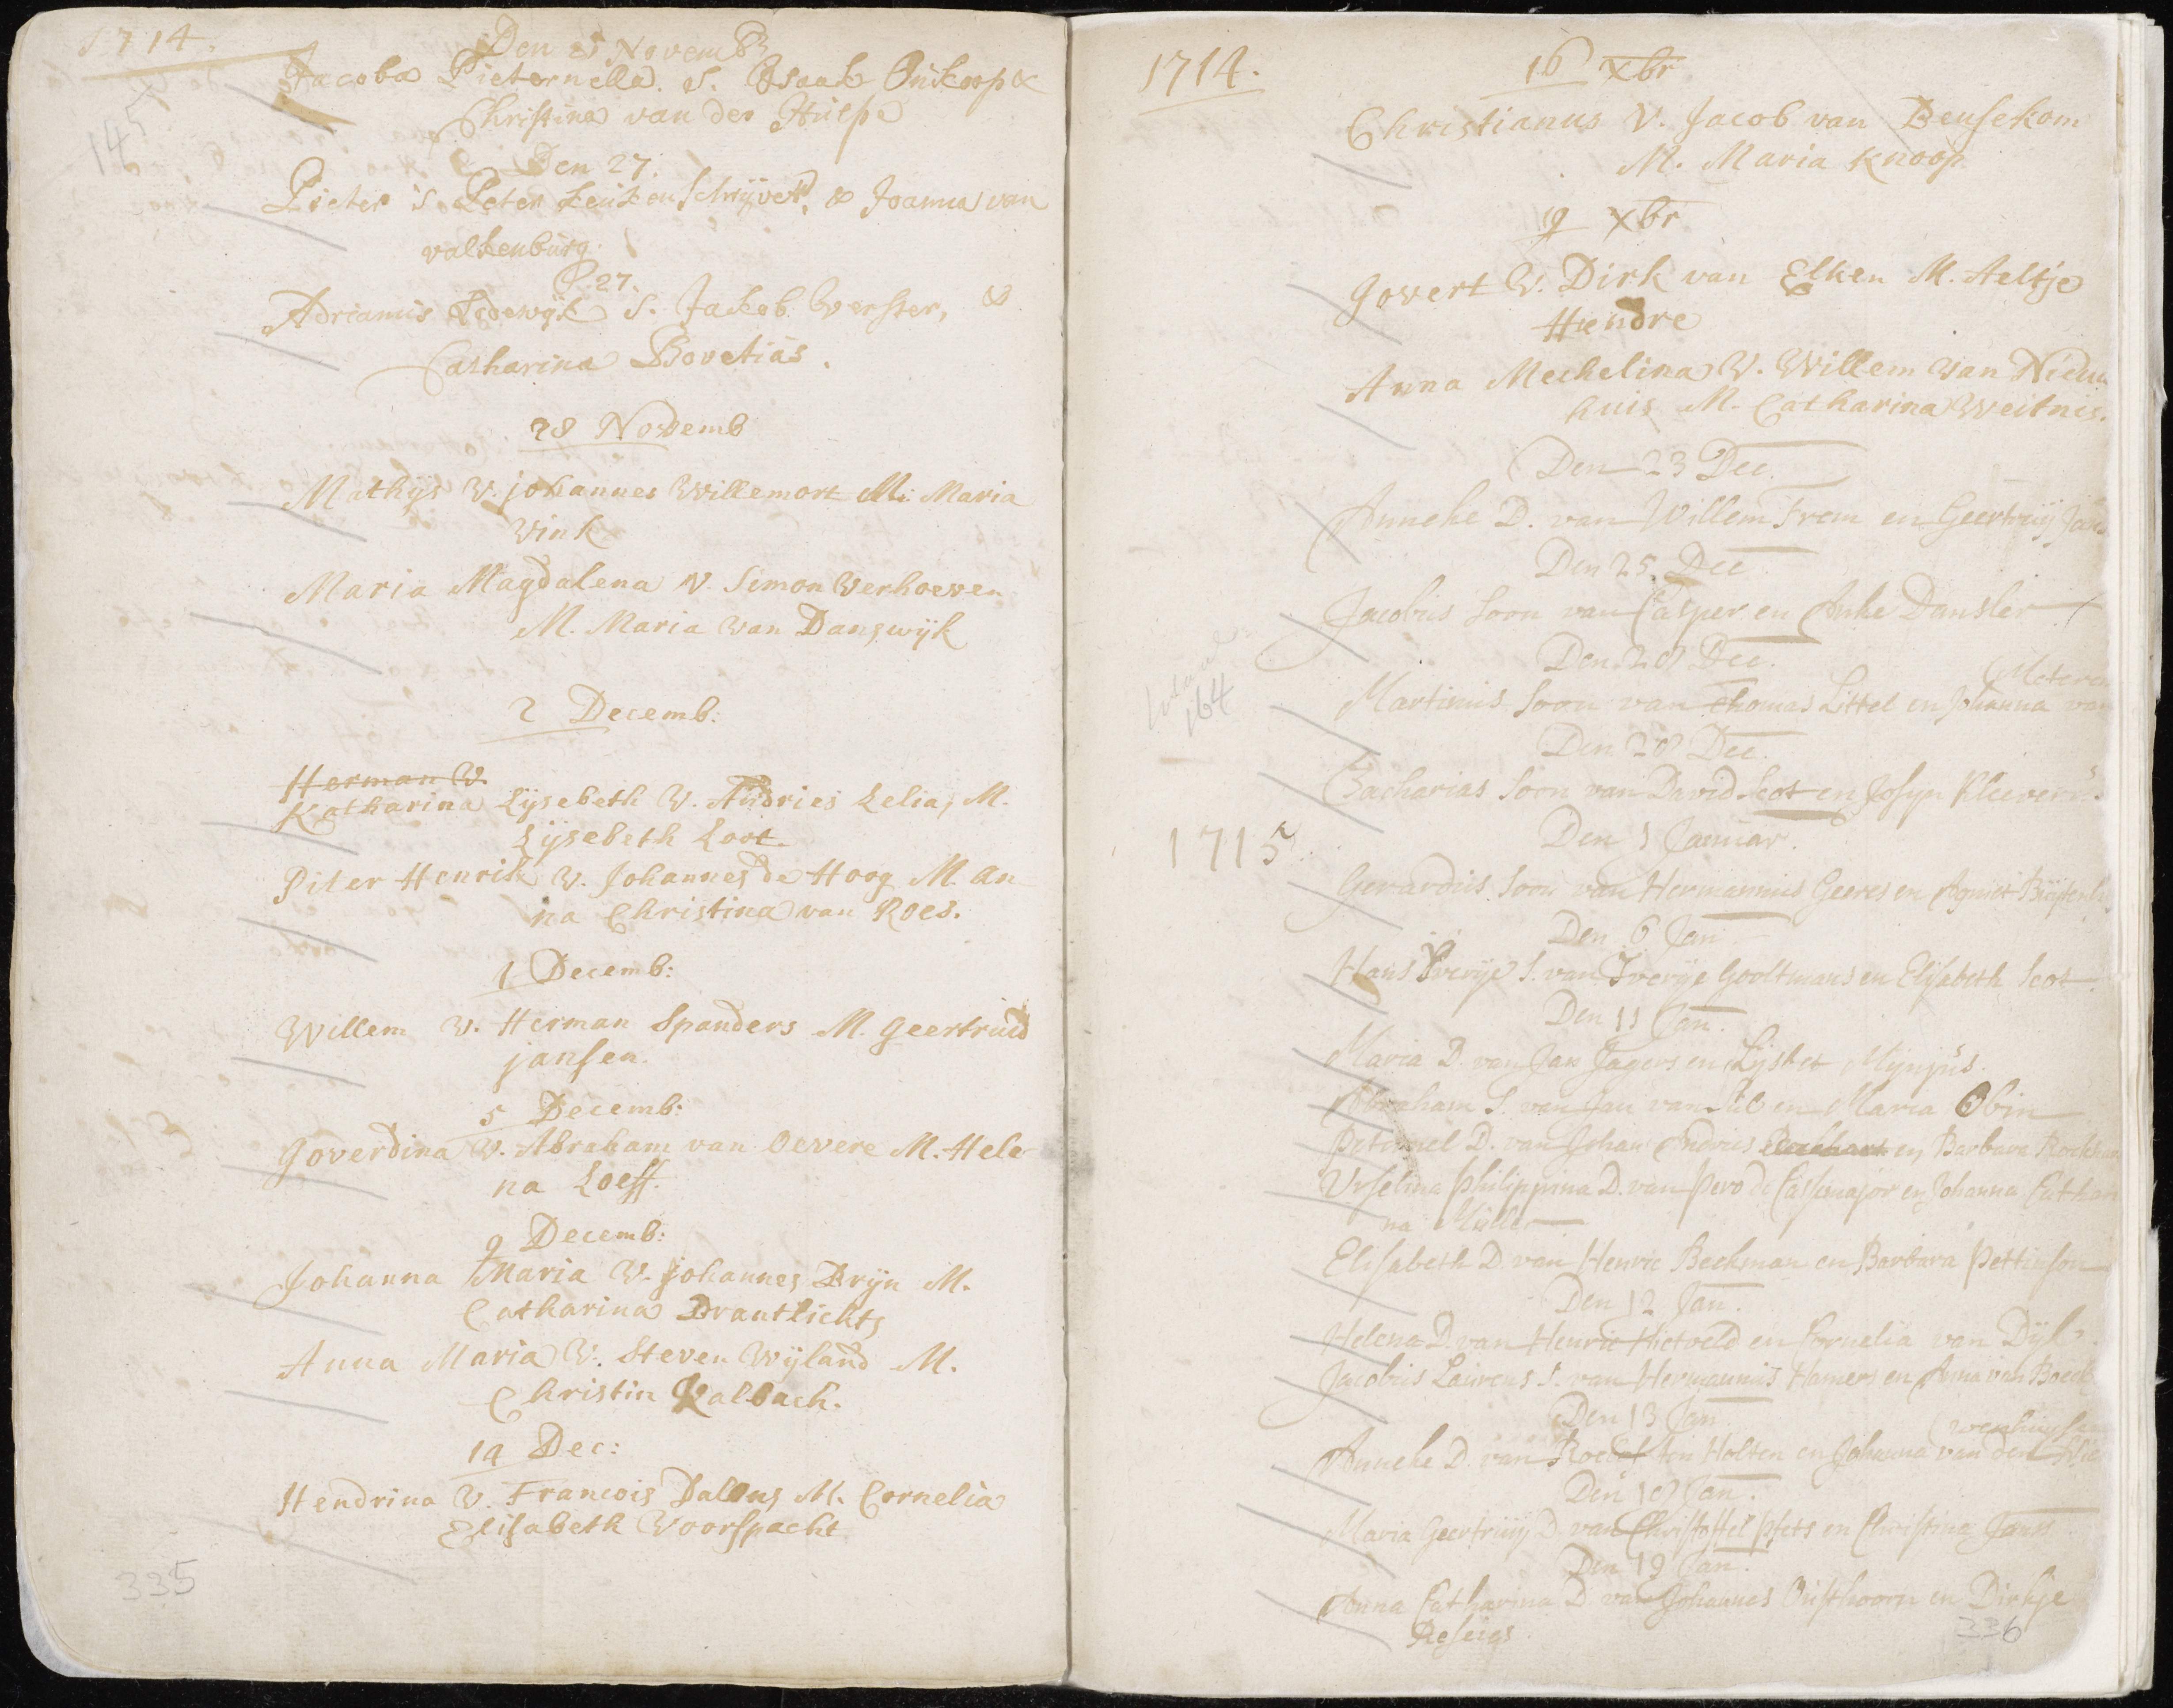 1714.
Den 25 Novemb
Jacoba Pieternella. S. Isaak Onkoop &
Christina van der Hulse
145
Den 27.
Pieter S. Peter Leuken Schrijver, & Joanna van
valkenburg.
D. 27.
Adrianus Lodewyk S. Jakob Verster, &
Catharina Bovetius.
28 Novemb
Mathijs V. johannes Willemort M: Maria
Vink
Maria Magdalena V. Simon Verhoeven
M. Maria van Danswijk
2 Decemb:
Herman V.
Katharina Lijsebeth V. Andries Lelia, M.
Lijsebeth Loot.
Piter Henrik V. Johannes de Hoog M. An
na Christina van Roes.
1 Decemb:
Willem V. Herman Spanders M. Geertruid
jansen.
5 Decemb:
Goverdina V. Abraham van Oevere M. Hele
na Loeff.
9 Decemb:
Johanna Maria V. johannes Bryn M.
Catharina Brantlichts
Anna Maria V. Steven Wijland M.
Christin Kalbach.
14 Dec:
Hendrina V. Francois Dallons M. Cornelia
Elisabeth Voorspacht
335
1714.
16 Xbr
Christianus V. Jacob van Beusekom
M. Maria Knoop
19 Xbr
Govert V. Dirk van Elken M. Aeltje
Hendre
Anna Mechelina V. Willem van Nieuw
huis M. Catharina Weitnis.
Den 23 Dec.
Anneke D. van Willem Frem en Geertruij Jans
Den 25. Dec
Jacobus Soon van Casper en Anke Dansler
Den 28 Dec.
Meteren
Martinus Soon van Thomas Littel en Johanna van
164
Den 28 Dec.
Zacharias Soon van David Scot en Josyn Kleever
1715.
Den 1 Januar.
Gerardus Soon van Hermannus Geeres en Agniet
Den 6 Jan
Hans Iverije S. van Iverije Gooltmans en Elisabeth Scot.
Den 11 Jan.
Maria D. van Jan Jagers en Lijsbet Mijnjus.
Abraham S. van Jan van Stil en Maria Obin
Peternel D. van Johan Andries en Barbara Rockhar
Urselina Philippina D. van Pero de Cassemajor en Johanna Cathari
na Müller
Elisabeth D. van Henric Beckman en Barbara Pettinson
Den 12 Jan.
Helena D. van Henric Hietveld en Cornelia van Dyk
Jacobus Laurens S. van Hermannus Hamers en Anna van Boeck
Den 13 Jan
Anneke D. van Roelof ten Holten en Johanna van den
Den 18 Jan.
Maria Geertruij D. van Christoffel Pfets en Christina Janss
Den 19 Jan.
Anna Catharina D van Johannes Outhoorn en Dirkje
Reseigs.
336